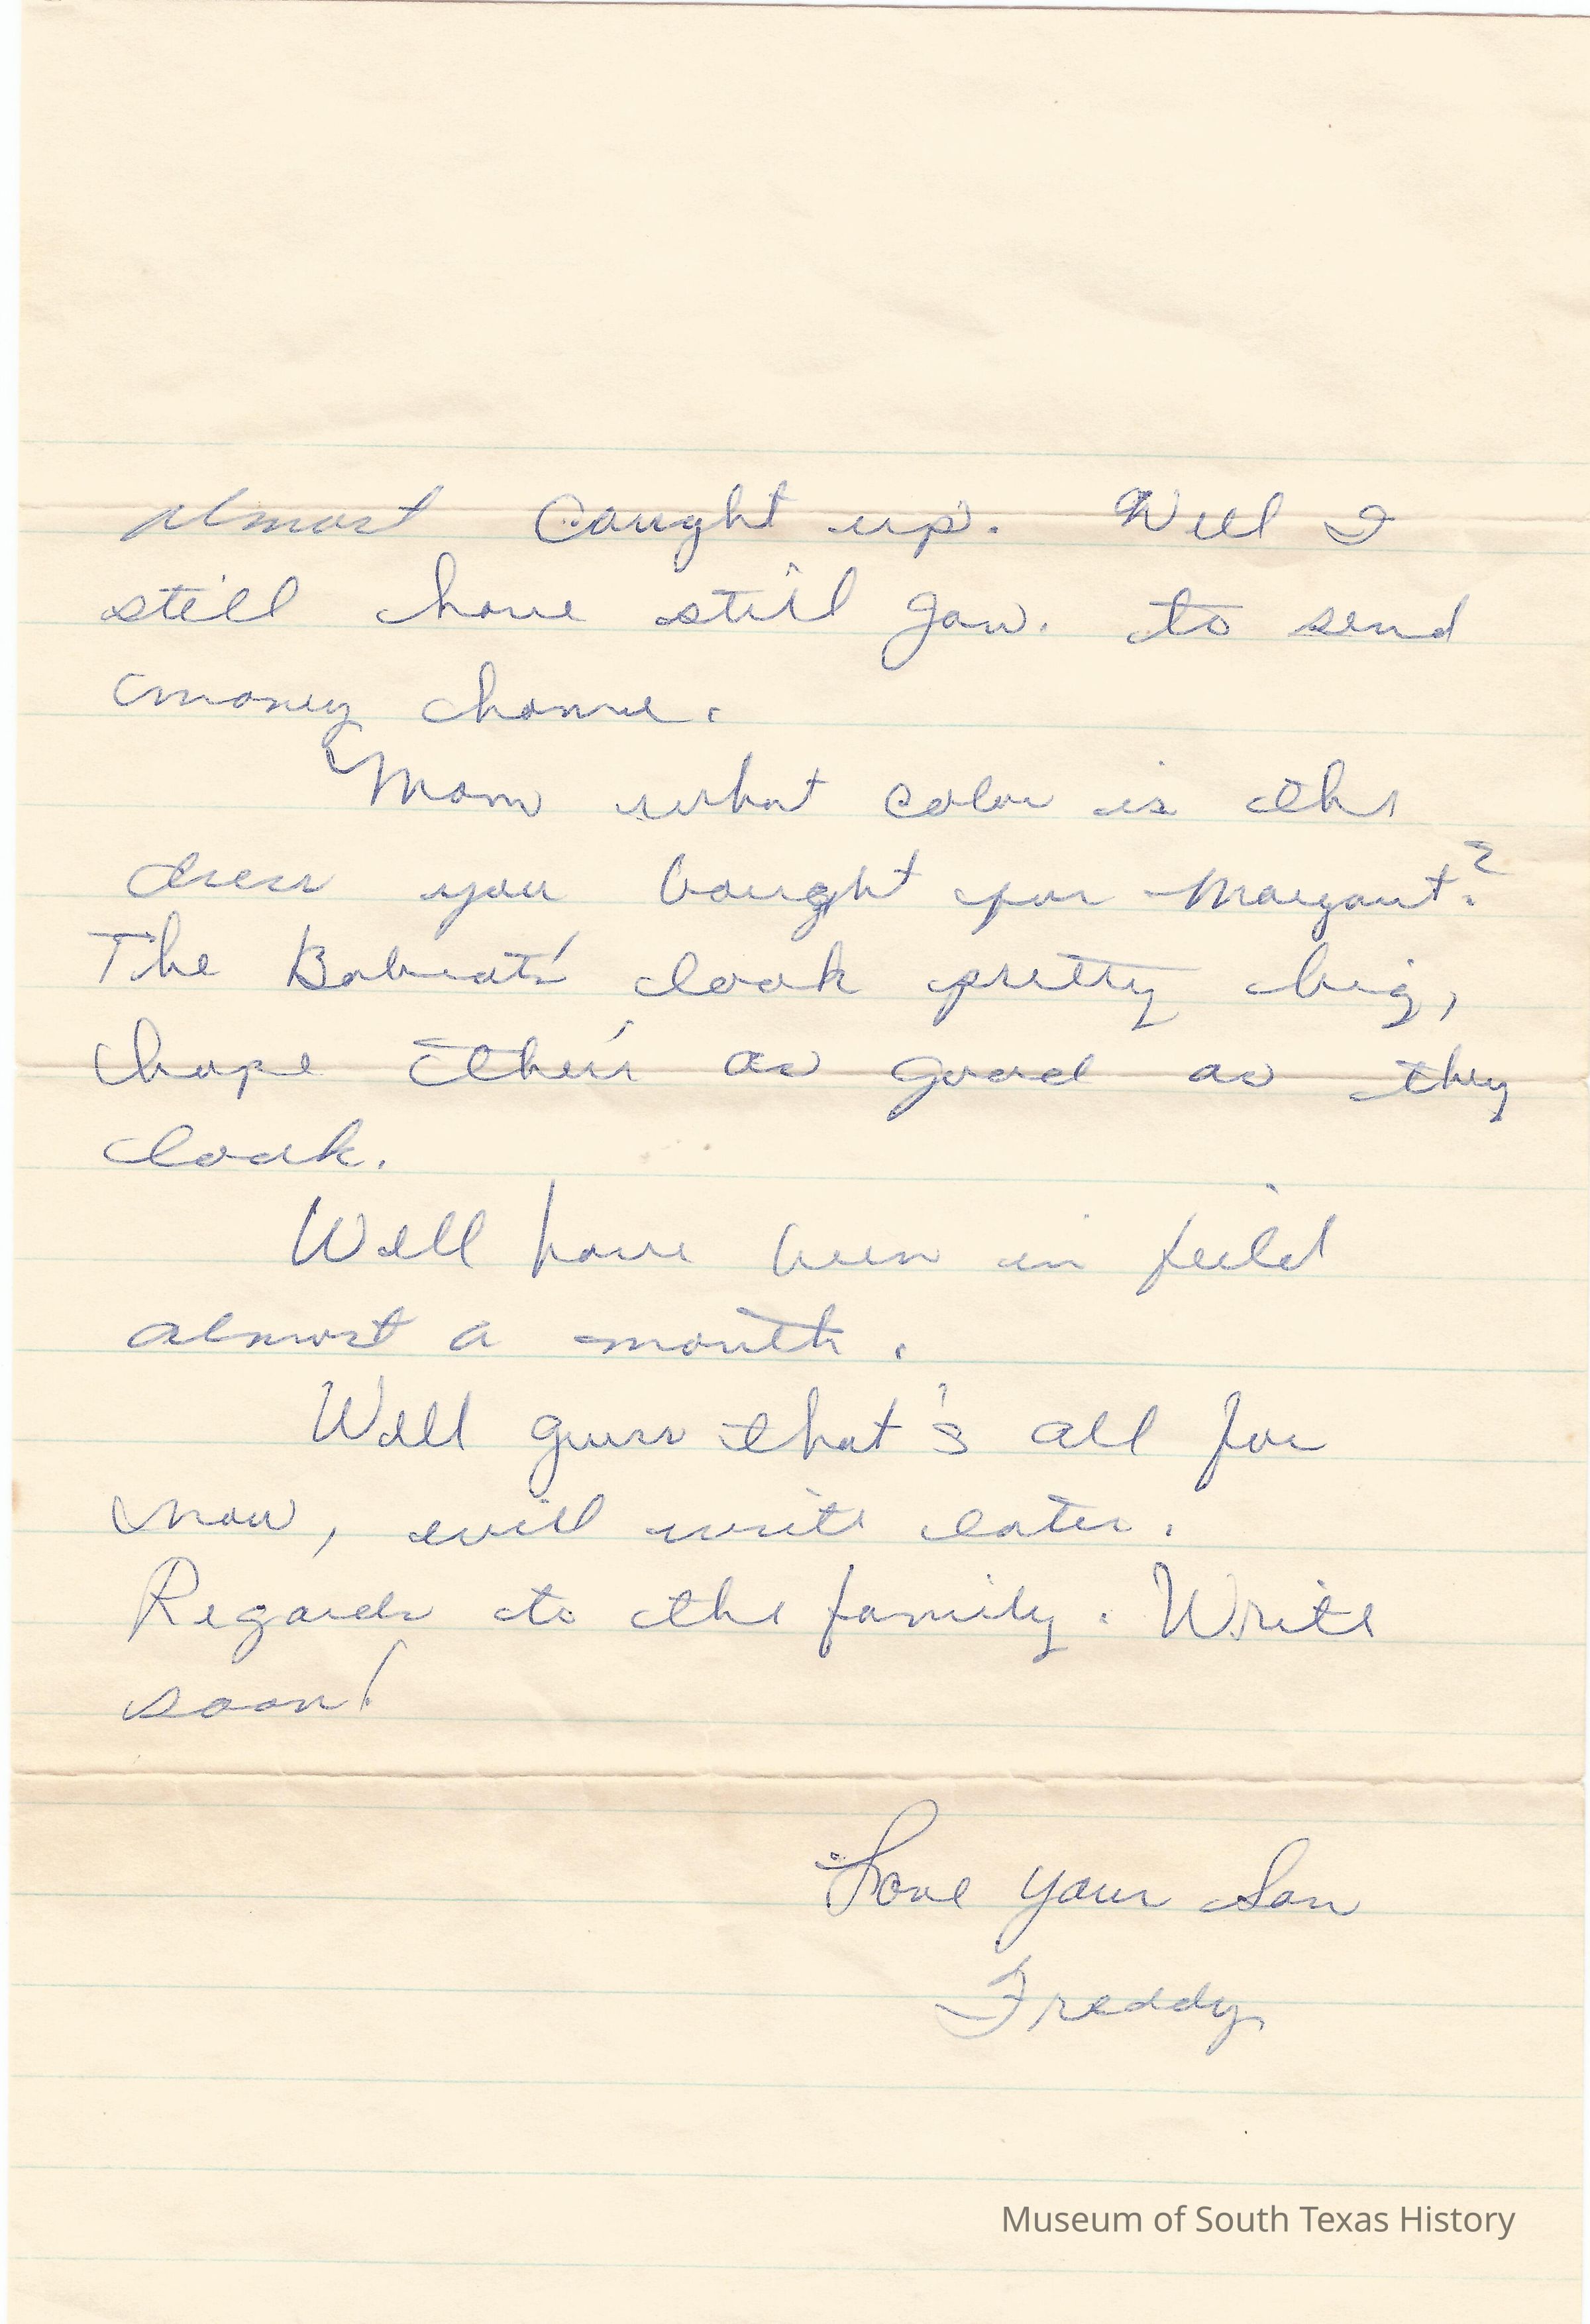 almost caught up. Well I
still have still Jan. to send
money home.
Mom what color is the
dress you bought for Margaret?
The Bobcats' look pretty big,
hope their as good as they
look.
Well have been in feild
almost a month.
Well guess that's all for
now, will write later.
Regards to the family. Write
soon!
Love your Son
Freddy
Museum of South Texas History